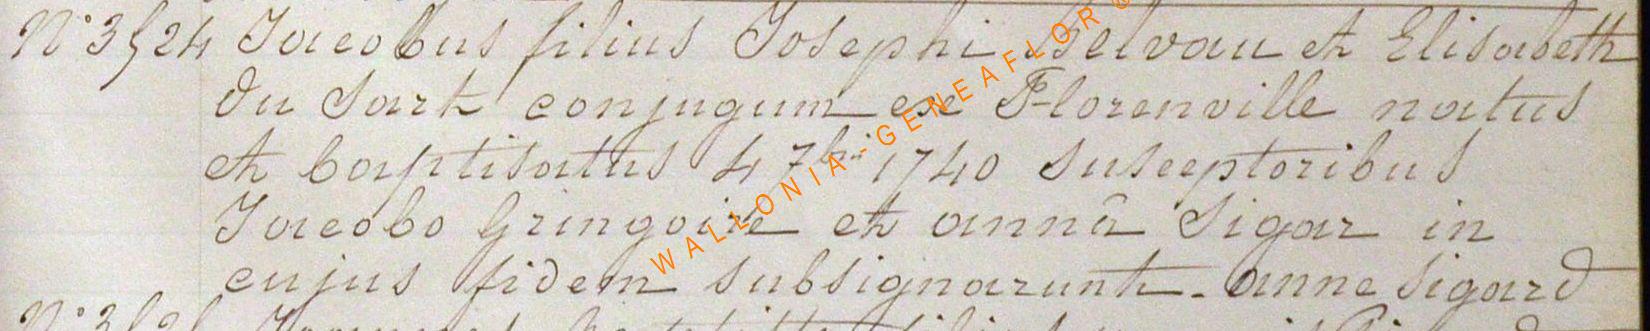 N° 3524 Jacobus filius Josephi Belvau et Elisabeth
du Sart conjugum ex Florenville natus
et baptisatus 4 7bri 1740 susceptoribus
Jacobo Gringoire et annâ Sigar in
cujus fidem subsignarunt. anne sigard
WALLONIA-GENEAFLOR ©